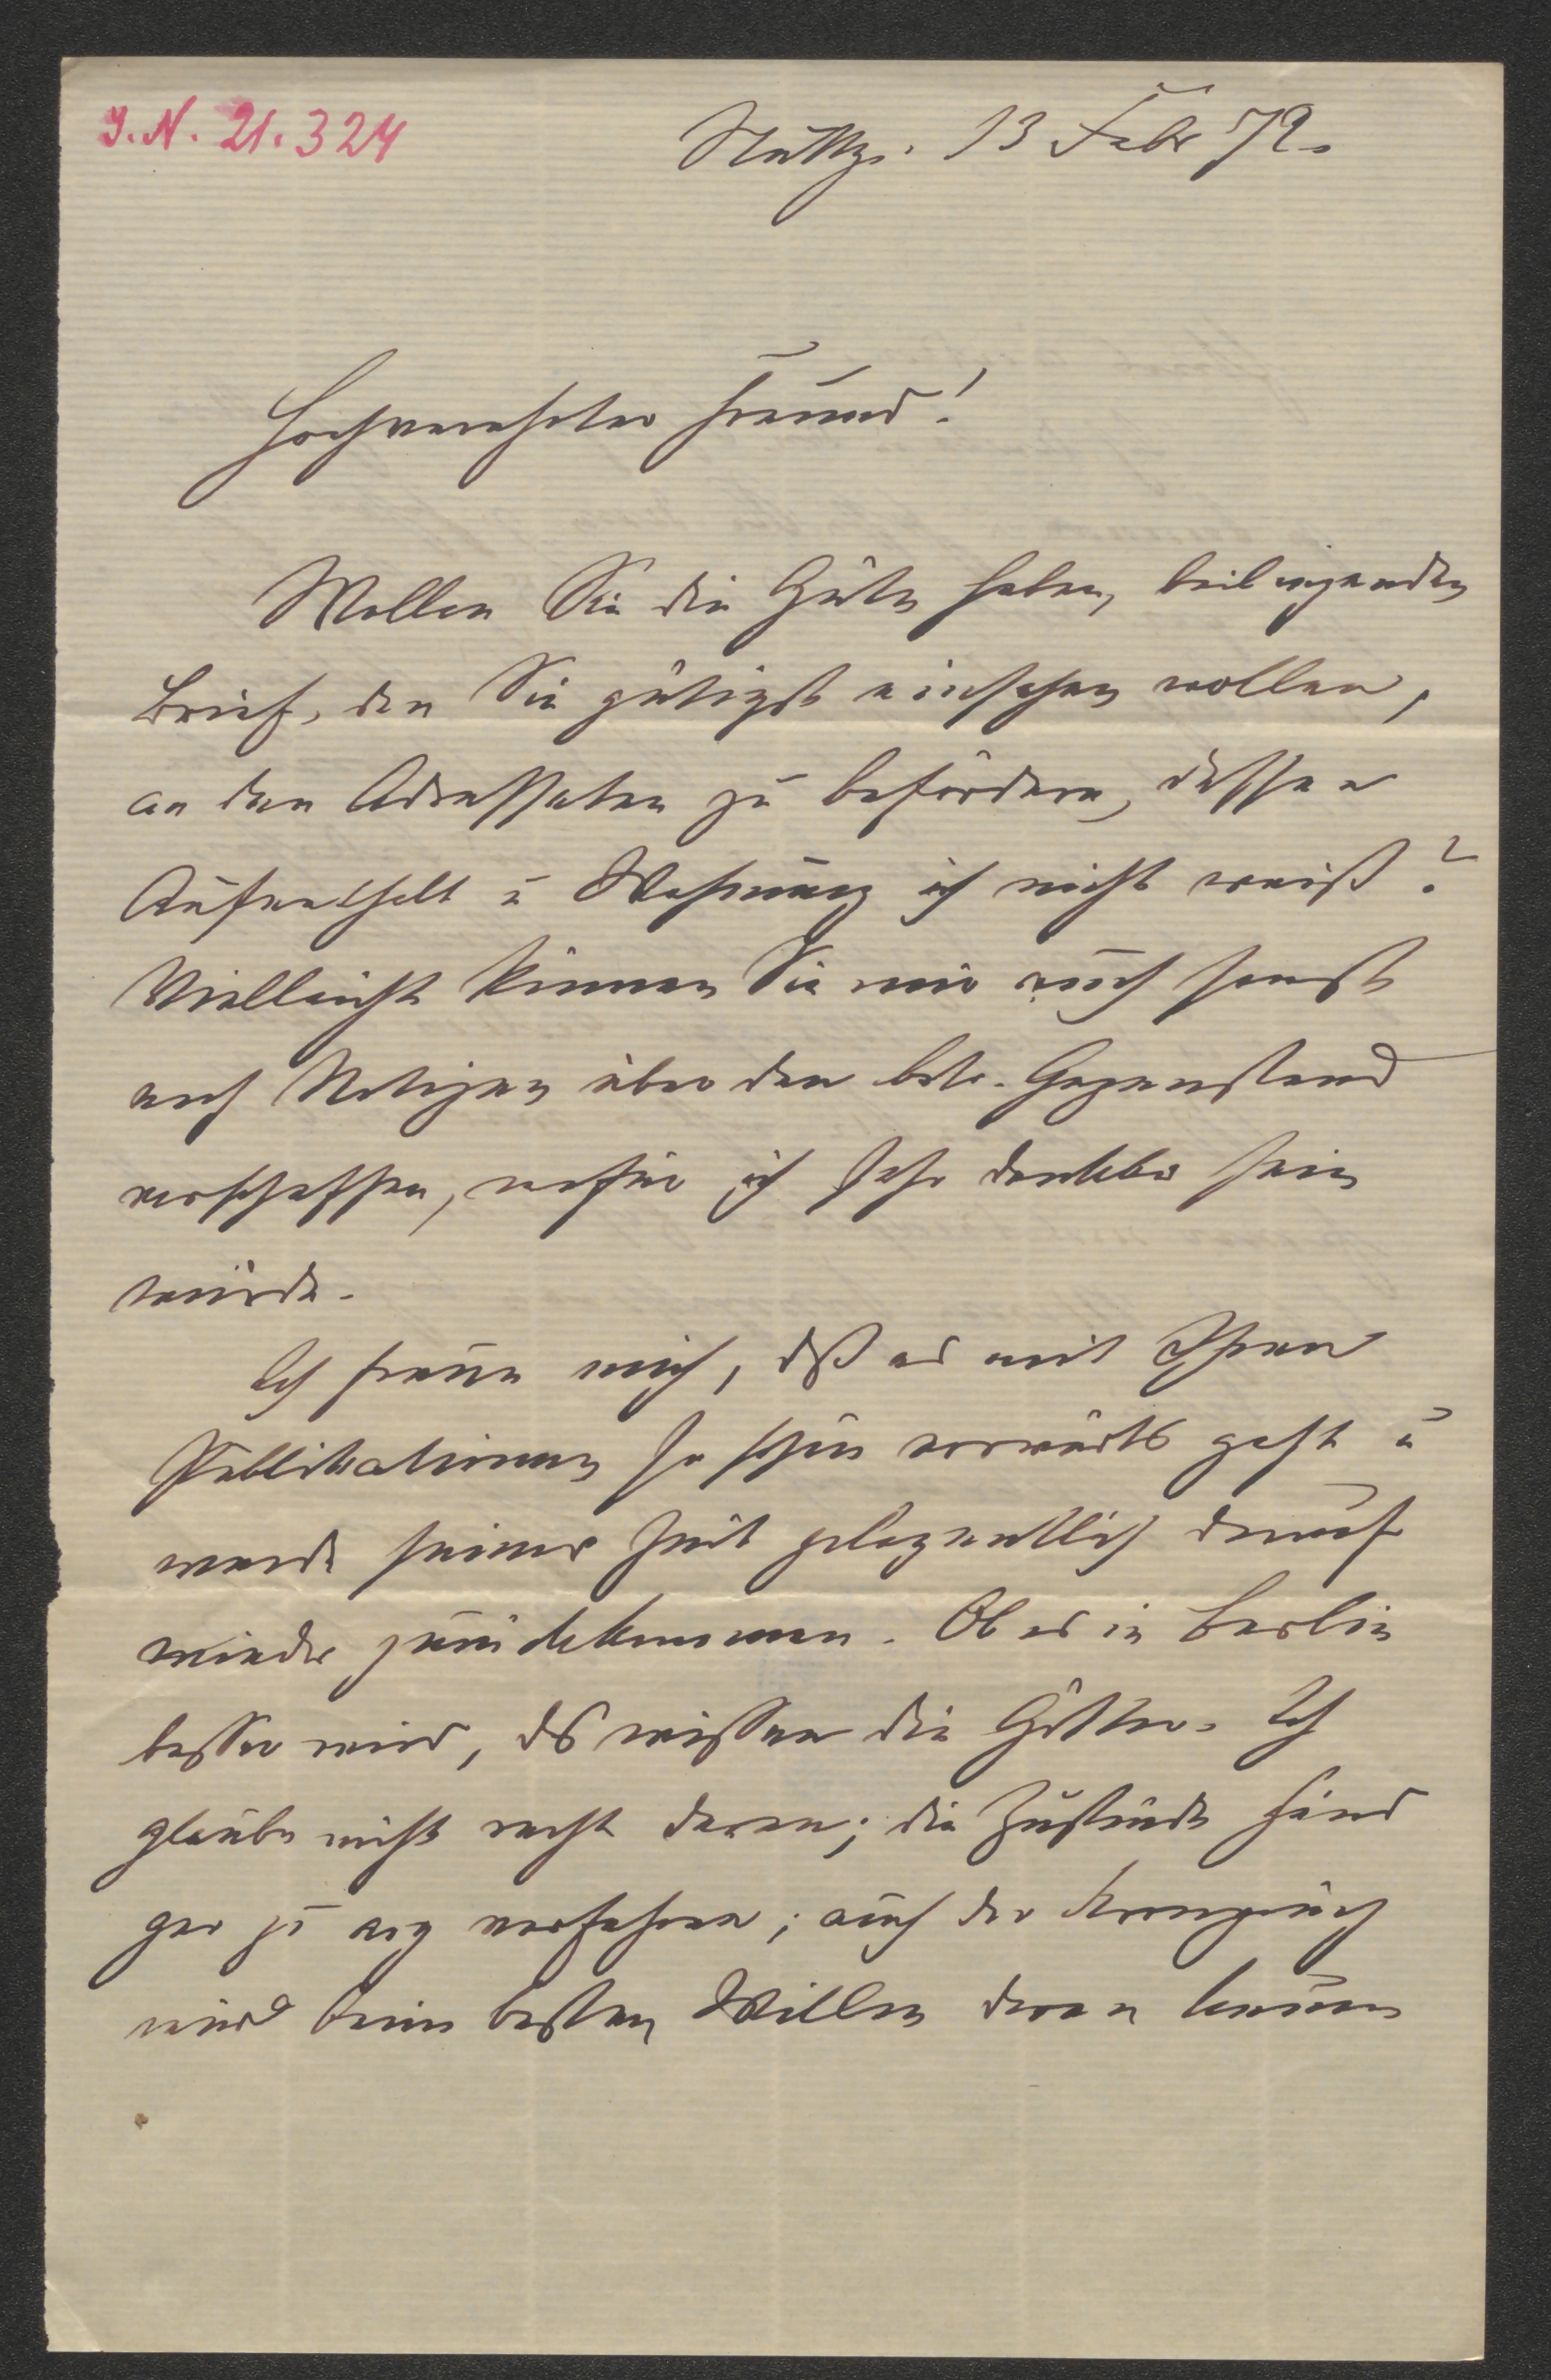 I.N. 21.324
Stuttg. 13 Febr 79.
Hochverehrter Freund!
Wollen Sie die Güte haben, beiliegenden
Brief, den Sie gütigst einsehen wollen,
an den Adressaten zu befördern, dessen
Aufenthalt u Wohnung ich nicht weiß?
Vielleicht können Sie mir auch sonst
noch Notizen über den betr. Gegenstand
verschaffen, wofür ich sehr dankbar sein
würde.
Ich freue mich, daß es mit Ihren
Publikationen so schön vorwärts geht u
werde seiner Zeit gelegentlich darauf
wieder zurückkommen. Ob es in Berlin
besser wird, das wissen die Götter. Ich
glaube nicht recht daran; die Zustände sind
gar zu arg verfahren; auch der Kronprinz
wird beim besten Willen daran kaum